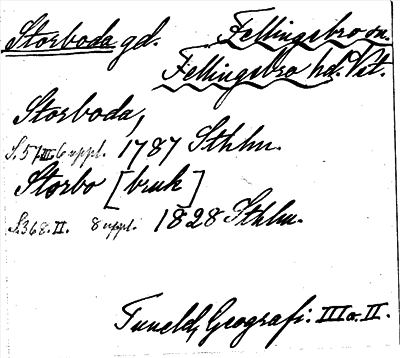 Storboda gd. Fellingsbro sn.
Fellingsbro hd. Vstl.
Storboda,
S. 57. III. 6 uppl. 1787 Sthlm.
Storbo [bruk]
S. 368. II. 8 uppl. 1828 Sthlm.
Tuneld, Geografi. III o. II.